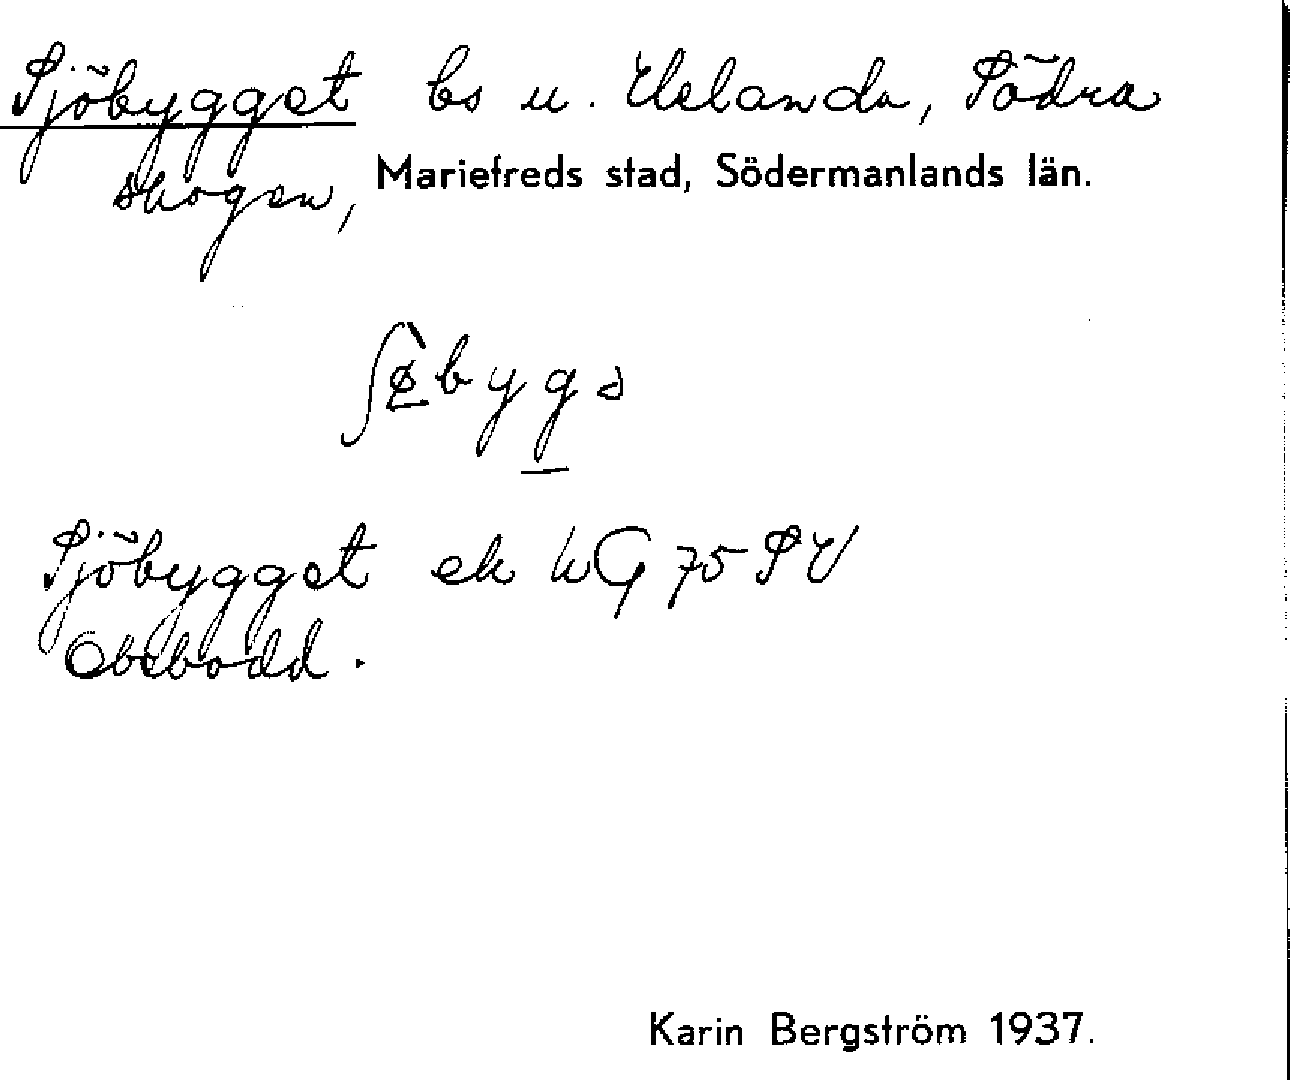 Sjöbygget bs u. Helanda, Södra
skogen, Mariefreds stad, Södermanlands län.
Sjöbygget ek hG 75 SV
Obebodd.
Karin Bergström 1937.